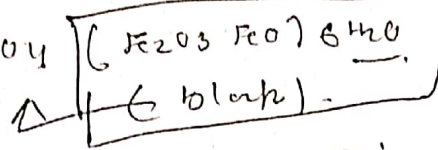 04 (Fe2O3 FeO) 6H2O
(black).